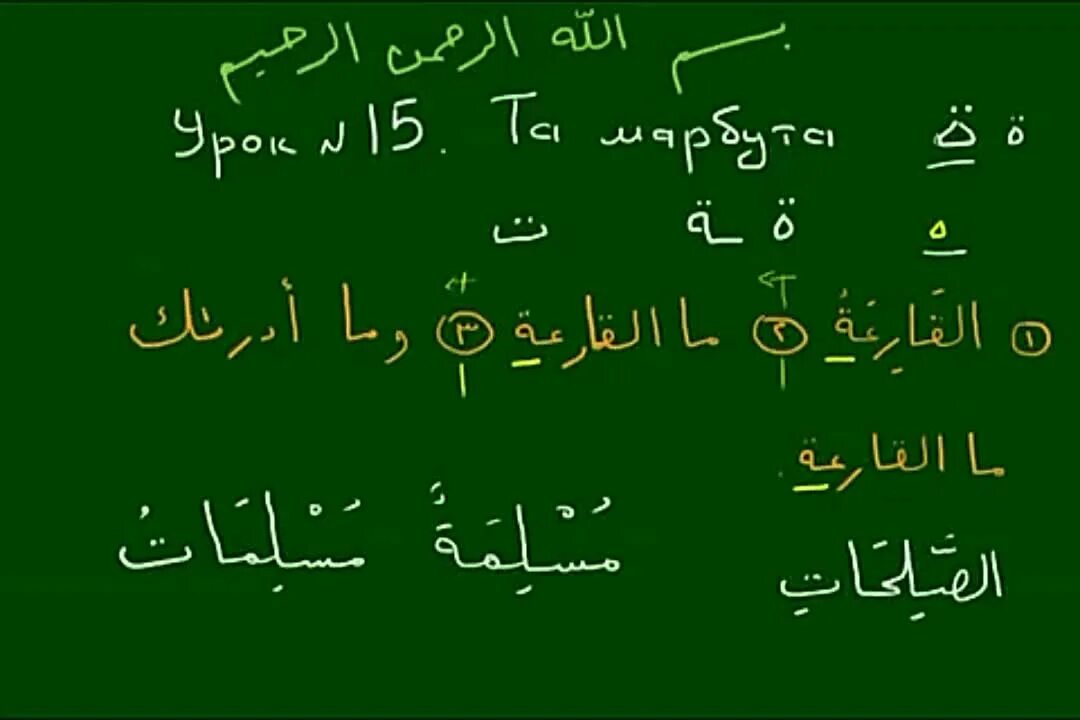 بسم الله الرحمن الرحيم
Урок № 15. Та марбута ـة ة
ه ة ـة ت
١ القَارِعَةُ ٢ ما القارعة ٣ وما أدرىٰك
ما القارعة
الصَّلِحَاتِ مُسْلِمَةً مُسْلِمَاتُ